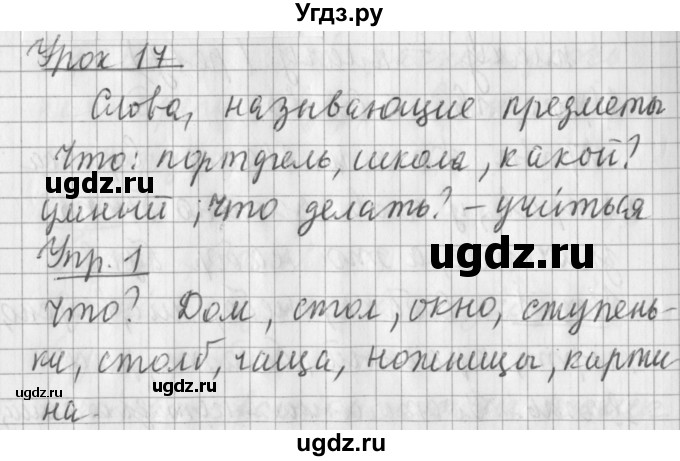 Угдз.ру
Урок 17
Слова, называющие предметы
Что: портфель, школа, какой?
ugdz.ru
умный; что делать? – учиться
ugdz.ru
Упр. 1
Что? Дом, стол, окно, ступень-
ки, столб, чаща, ножницы, карти
ugdz.ru
ugdz.ru
на.
ugdz.ru